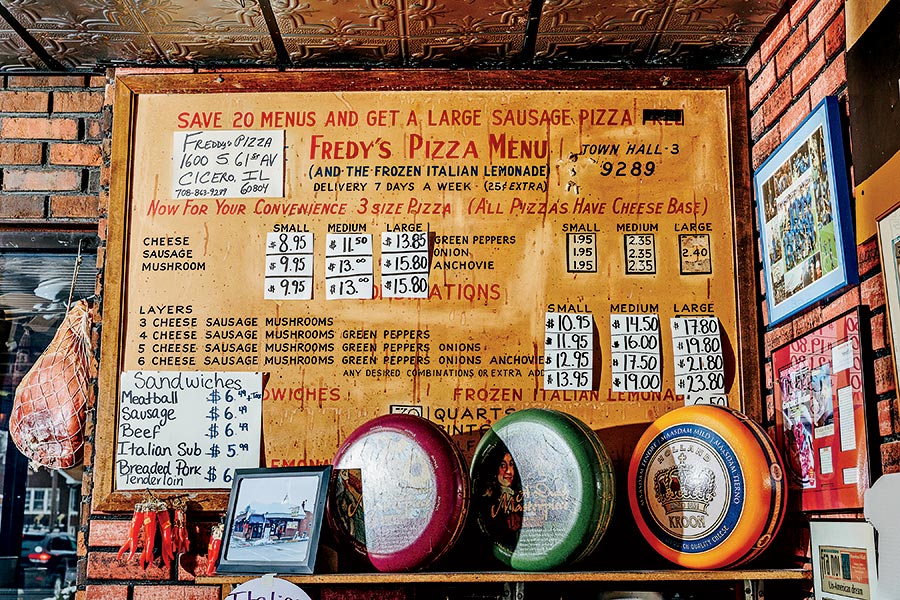 SAVE 20 MENUS AND GET A LARGE SAUSAGE PIZZA
FREDDY'S PIZZA
1600 S 61ST AV
CICERO, IL
708-863-9289 60804
FREDY'S PIZZA MENU
(AND THE FROZEN ITALIAN LEMONADE)
DELIVERY 7 DAYS A WEEK (25¢ EXTRA)
TOWN HALL-3
9289
NOW FOR YOUR CONVENIENCE 3 SIZE PIZZA (ALL PIZZAS HAVE CHEESE BASE)
SMALL MEDIUM LARGE SMALL MEDIUM LARGE
CHEESE $8.95 $11.50 $13.85 GREEN PEPPERS 1.95 2.35
SAUSAGE $9.95 $13.00 $15.80 ONION 1.95 2.35 2.40
MUSHROOM $9.95 $13.00 $15.80 ANCHOVIE 1.95 2.35
LAYERS SMALL MEDIUM LARGE
3 CHEESE SAUSAGE MUSHROOMS $10.95 $14.50 $17.80
4 CHEESE SAUSAGE MUSHROOMS GREEN PEPPERS $11.95 $16.00 $19.80
5 CHEESE SAUSAGE MUSHROOMS GREEN PEPPERS ONIONS $12.95 $17.50 $21.80
6 CHEESE SAUSAGE MUSHROOMS GREEN PEPPERS ONIONS ANCHOVIE $13.95 $19.00 $23.80
ANY DESIRED COMBINATIONS OR EXTRA
FROZEN ITALIAN
QUARTS
Sandwiches
Meatball $6.49 + TAX
Sausage $6.49
Beef $6.49
Italian Sub $5.99
Breaded Pork
Tenderloin
MAASDAM MILD
HOLLAND
KROON
Italian